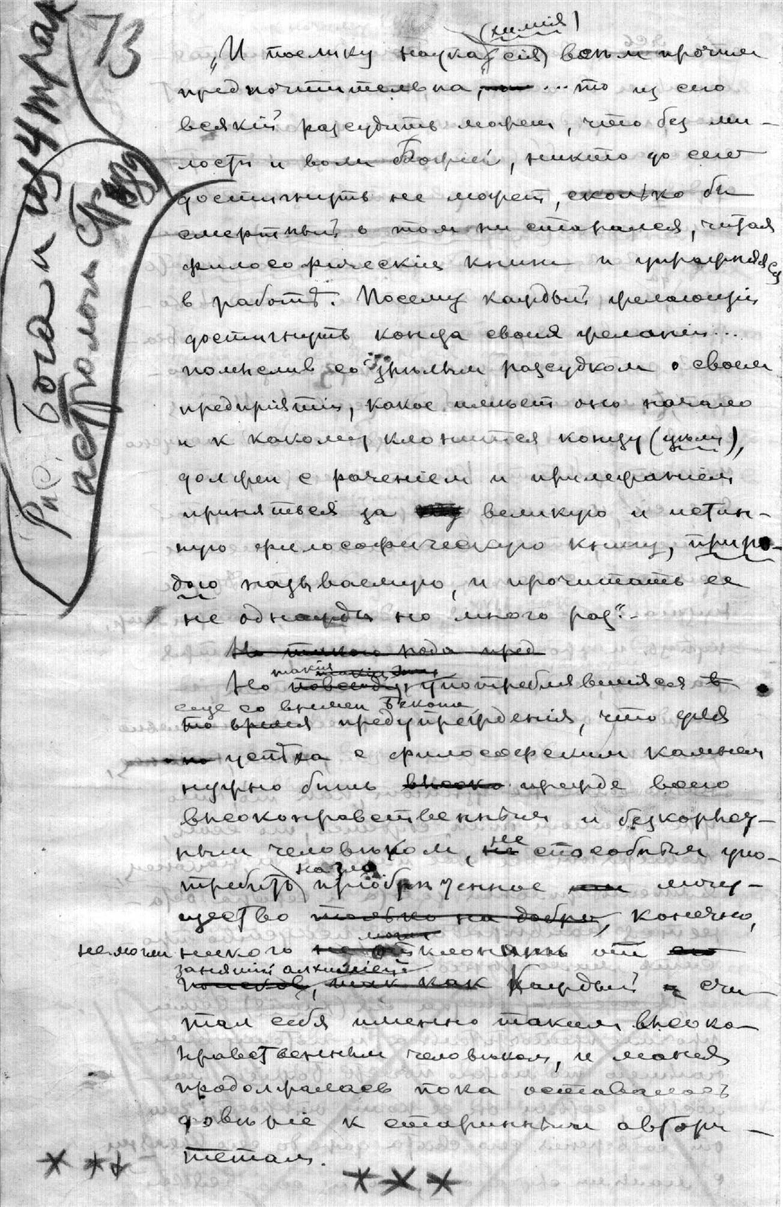 73
Рис. Бога и из 4 трак
астрологи
(химія)
„И поелику наука сія всѣм прочим
предпочтительна, ... то из сего
всякій разсудить может, что без ми-
лости и воли Божіей, никто до сего
достигнуть не может, сколько бы
смертный о том ни старался, читая
философическія книги и упражняясь
в работѣ. Посему каждый желающій
достигнуть конца своих желаній...
помыслив со зрѣлым разсудком о своем
предпріятіи, какое имѣет оно начало
и к какому клонится концу (цѣли),
должен с раченіем и прилежаніем
приняться за великую и истин-
ную философическую книгу, приро-
дою называемую, и прочитать ее
не однажды но много раз".-
Но такого рода пред
Но такія употреблявшіяся
еще со времен Бекона
то время предупрежденія, что для
успѣха с философским камнем
нужно быть высоко прежде всего
высоконравственным и безкорыст-
ным человѣком, не способным упо-
на зло
требить пріобрѣтенное могу-
щество только на добро, конечно,
не могли никого отклонить от
занятій алхиміей
поисков, так как Каждый счи-
тал себя именно таким высоко-
нравственным человѣком, и манія
продолжалась пока оставалось
довѣріе к старинным автори-
тетам.
*** ***